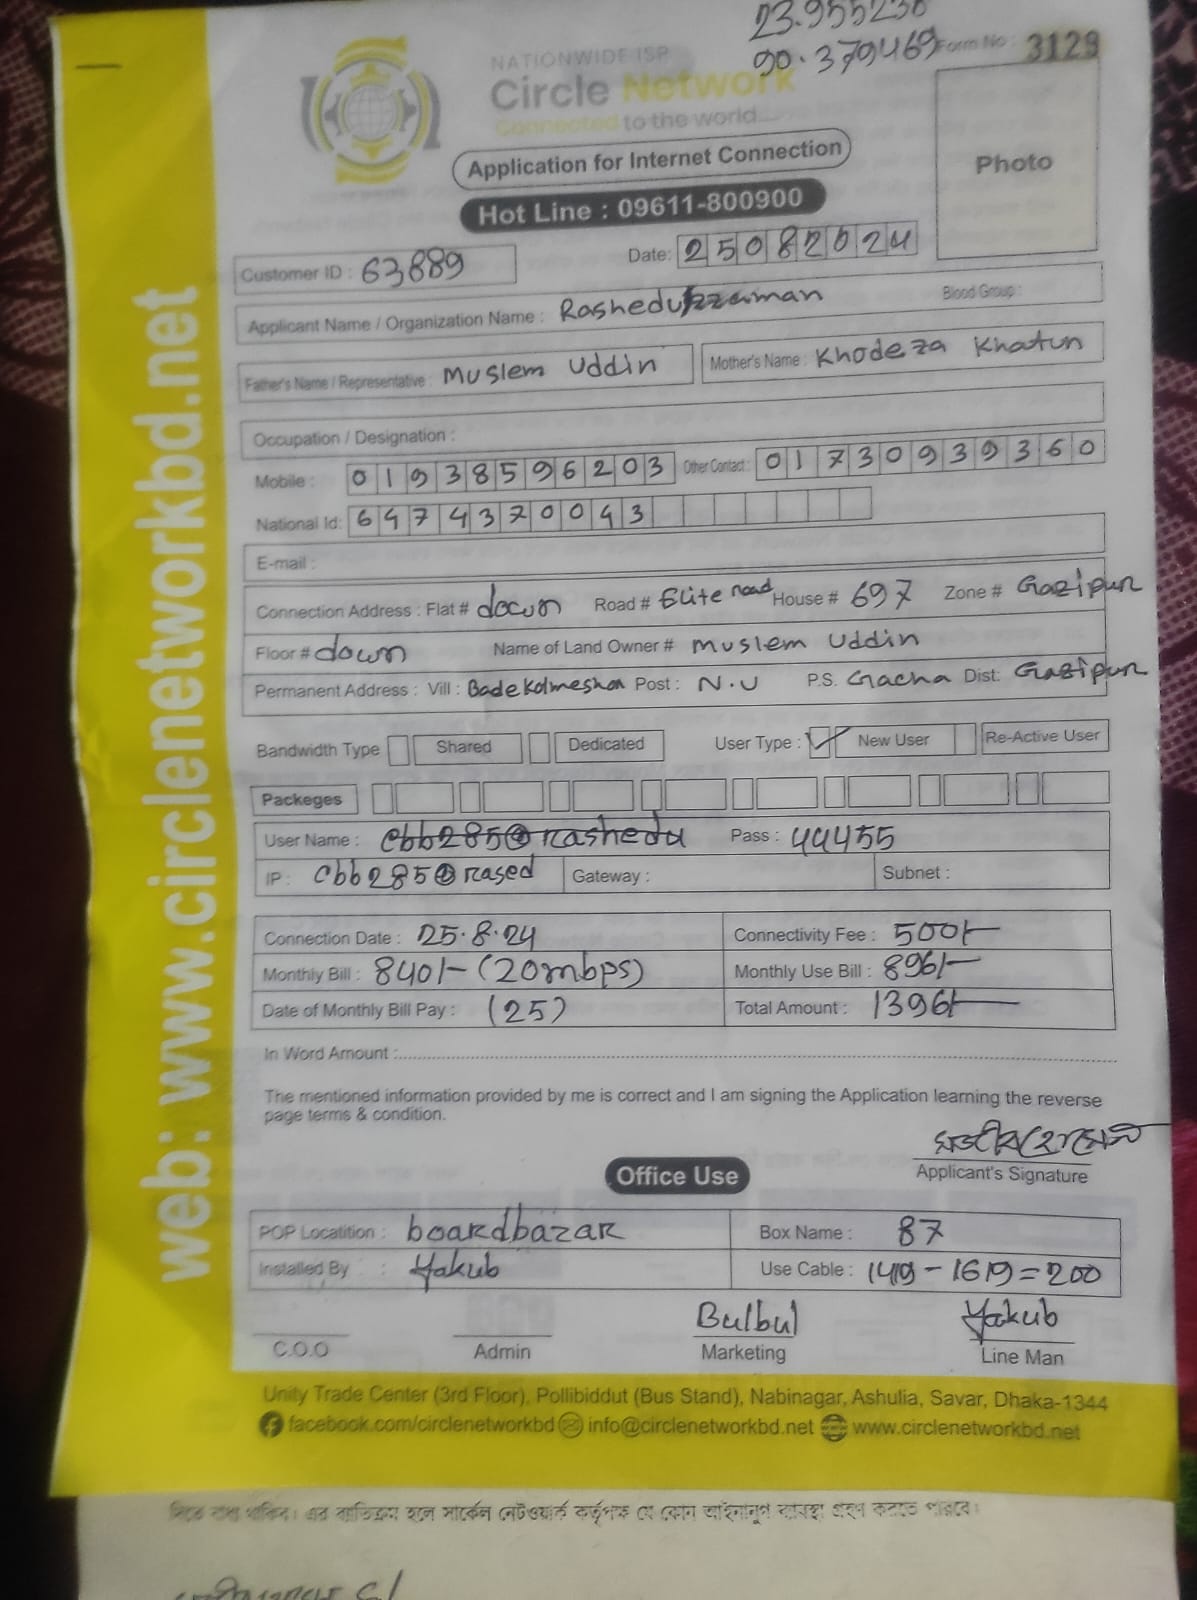 23.955238
90.379469
Form No : 3129
NATIONWIDE ISP
Circle Network
Connected to the world....
Application for Internet Connection
Photo
Hot Line : 09611-800900
Customer ID : 63889
Date: 25082024
Applicant Name / Organization Name : Rasheduzzaman
Blood Group :
Father's Name / Representative : Muslem Uddin
Mother's Name : Khodeza Khatun
Occupation / Designation :
Mobile : 01938596203 Other Contact : 01730939360
National Id: 6474370043
E-mail :
Connection Address : Flat # down Road # Elite road House # 697 Zone # Gazipur
Floor # down Name of Land Owner # Muslem Uddin
Permanent Address : Vill : Badekolmeshor Post : N.U P.S. Gacha Dist: Gazipur
Bandwidth Type Shared Dedicated User Type : New User Re-Active User
Packeges
User Name : cbb285@rashedu Pass : 44455
IP : cbb285@rased Gateway : Subnet :
Connection Date : 25.8.24 Connectivity Fee : 500/-
Monthly Bill : 840/- (20mbps) Monthly Use Bill : 896/-
Date of Monthly Bill Pay : (25) Total Amount : 1396/-
In Word Amount :
The mentioned information provided by me is correct and I am signing the Application learning the reverse
page terms & condition.
Applicant's Signature
Office Use
POP Locatition : boardbazar Box Name : 87
Installed By : Yakub Use Cable : 1419 - 1619 = 200
Bulbul Yakub
C.O.O Admin Marketing Line Man
Unity Trade Center (3rd Floor), Pollibiddut (Bus Stand), Nabinagar, Ashulia, Savar, Dhaka-1344
facebook.com/circlenetworkbd info@circlenetworkbd.net www.circlenetworkbd.net
web: www.circlenetworkbd.net
দিতে বাধ্য থাকিব। এর ব্যতিক্রম হলে সার্কেল নেটওয়ার্ক কর্তৃপক্ষ যে কোন আইনানুগ ব্যবস্থা গ্রহণ করতে পারবে।